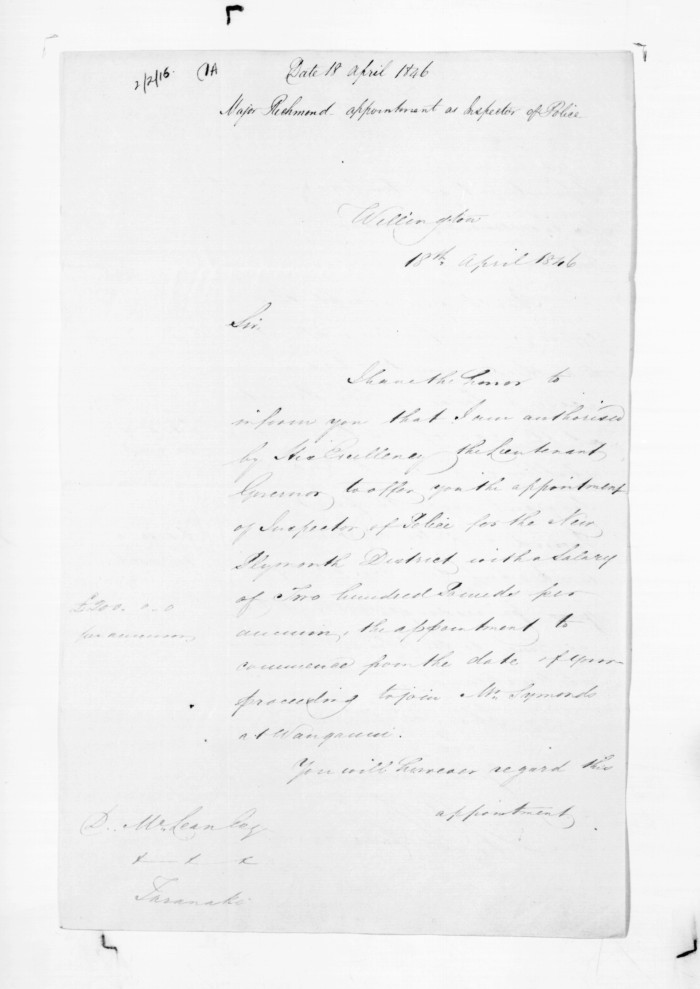 2/2/16. IA Date 18 April 1846
Major Richmond appointment as Inspector of Police
Wellington
18th April 1846
Sir,
I have the honor to
inform you that I am authorised
by His Excellency the Lieutenant
Governor to offer you the appointment
of Inspector of Police for the New
Plymouth District with a Salary
of Two hundred Pounds per
annum, the appointment to
commence from the date of your
proceeding to join Mr. Symonds
at Wanganui.
£200. 0. 0
per annum
You will however regard this
appointment
D. McLean Esq
x x x
Taranaki